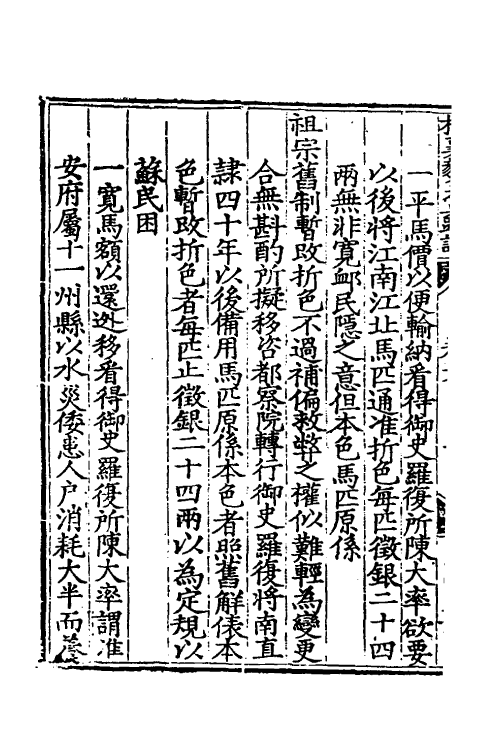 一平馬價以便輸納看得御史羅復所陳大率欲要
以後將江南江北馬匹通准折色每匹徵銀二十四
兩無非寬䘏民隱之意但本色馬匹原係
祖宗舊制暫改折色不過補偏救弊之權似難輕為變更
合無斟酌所擬移咨都察院轉行御史羅復將南直
隷四十年以後備用馬匹原係本色者照舊解俵本
色暫改折色者每匹止徵銀二十四兩以為定規以
蘇民困
一寬馬額以還迯移看得御史羅復所陳大率謂淮
安府屬十一州縣以水災倭患人户消耗大半而養